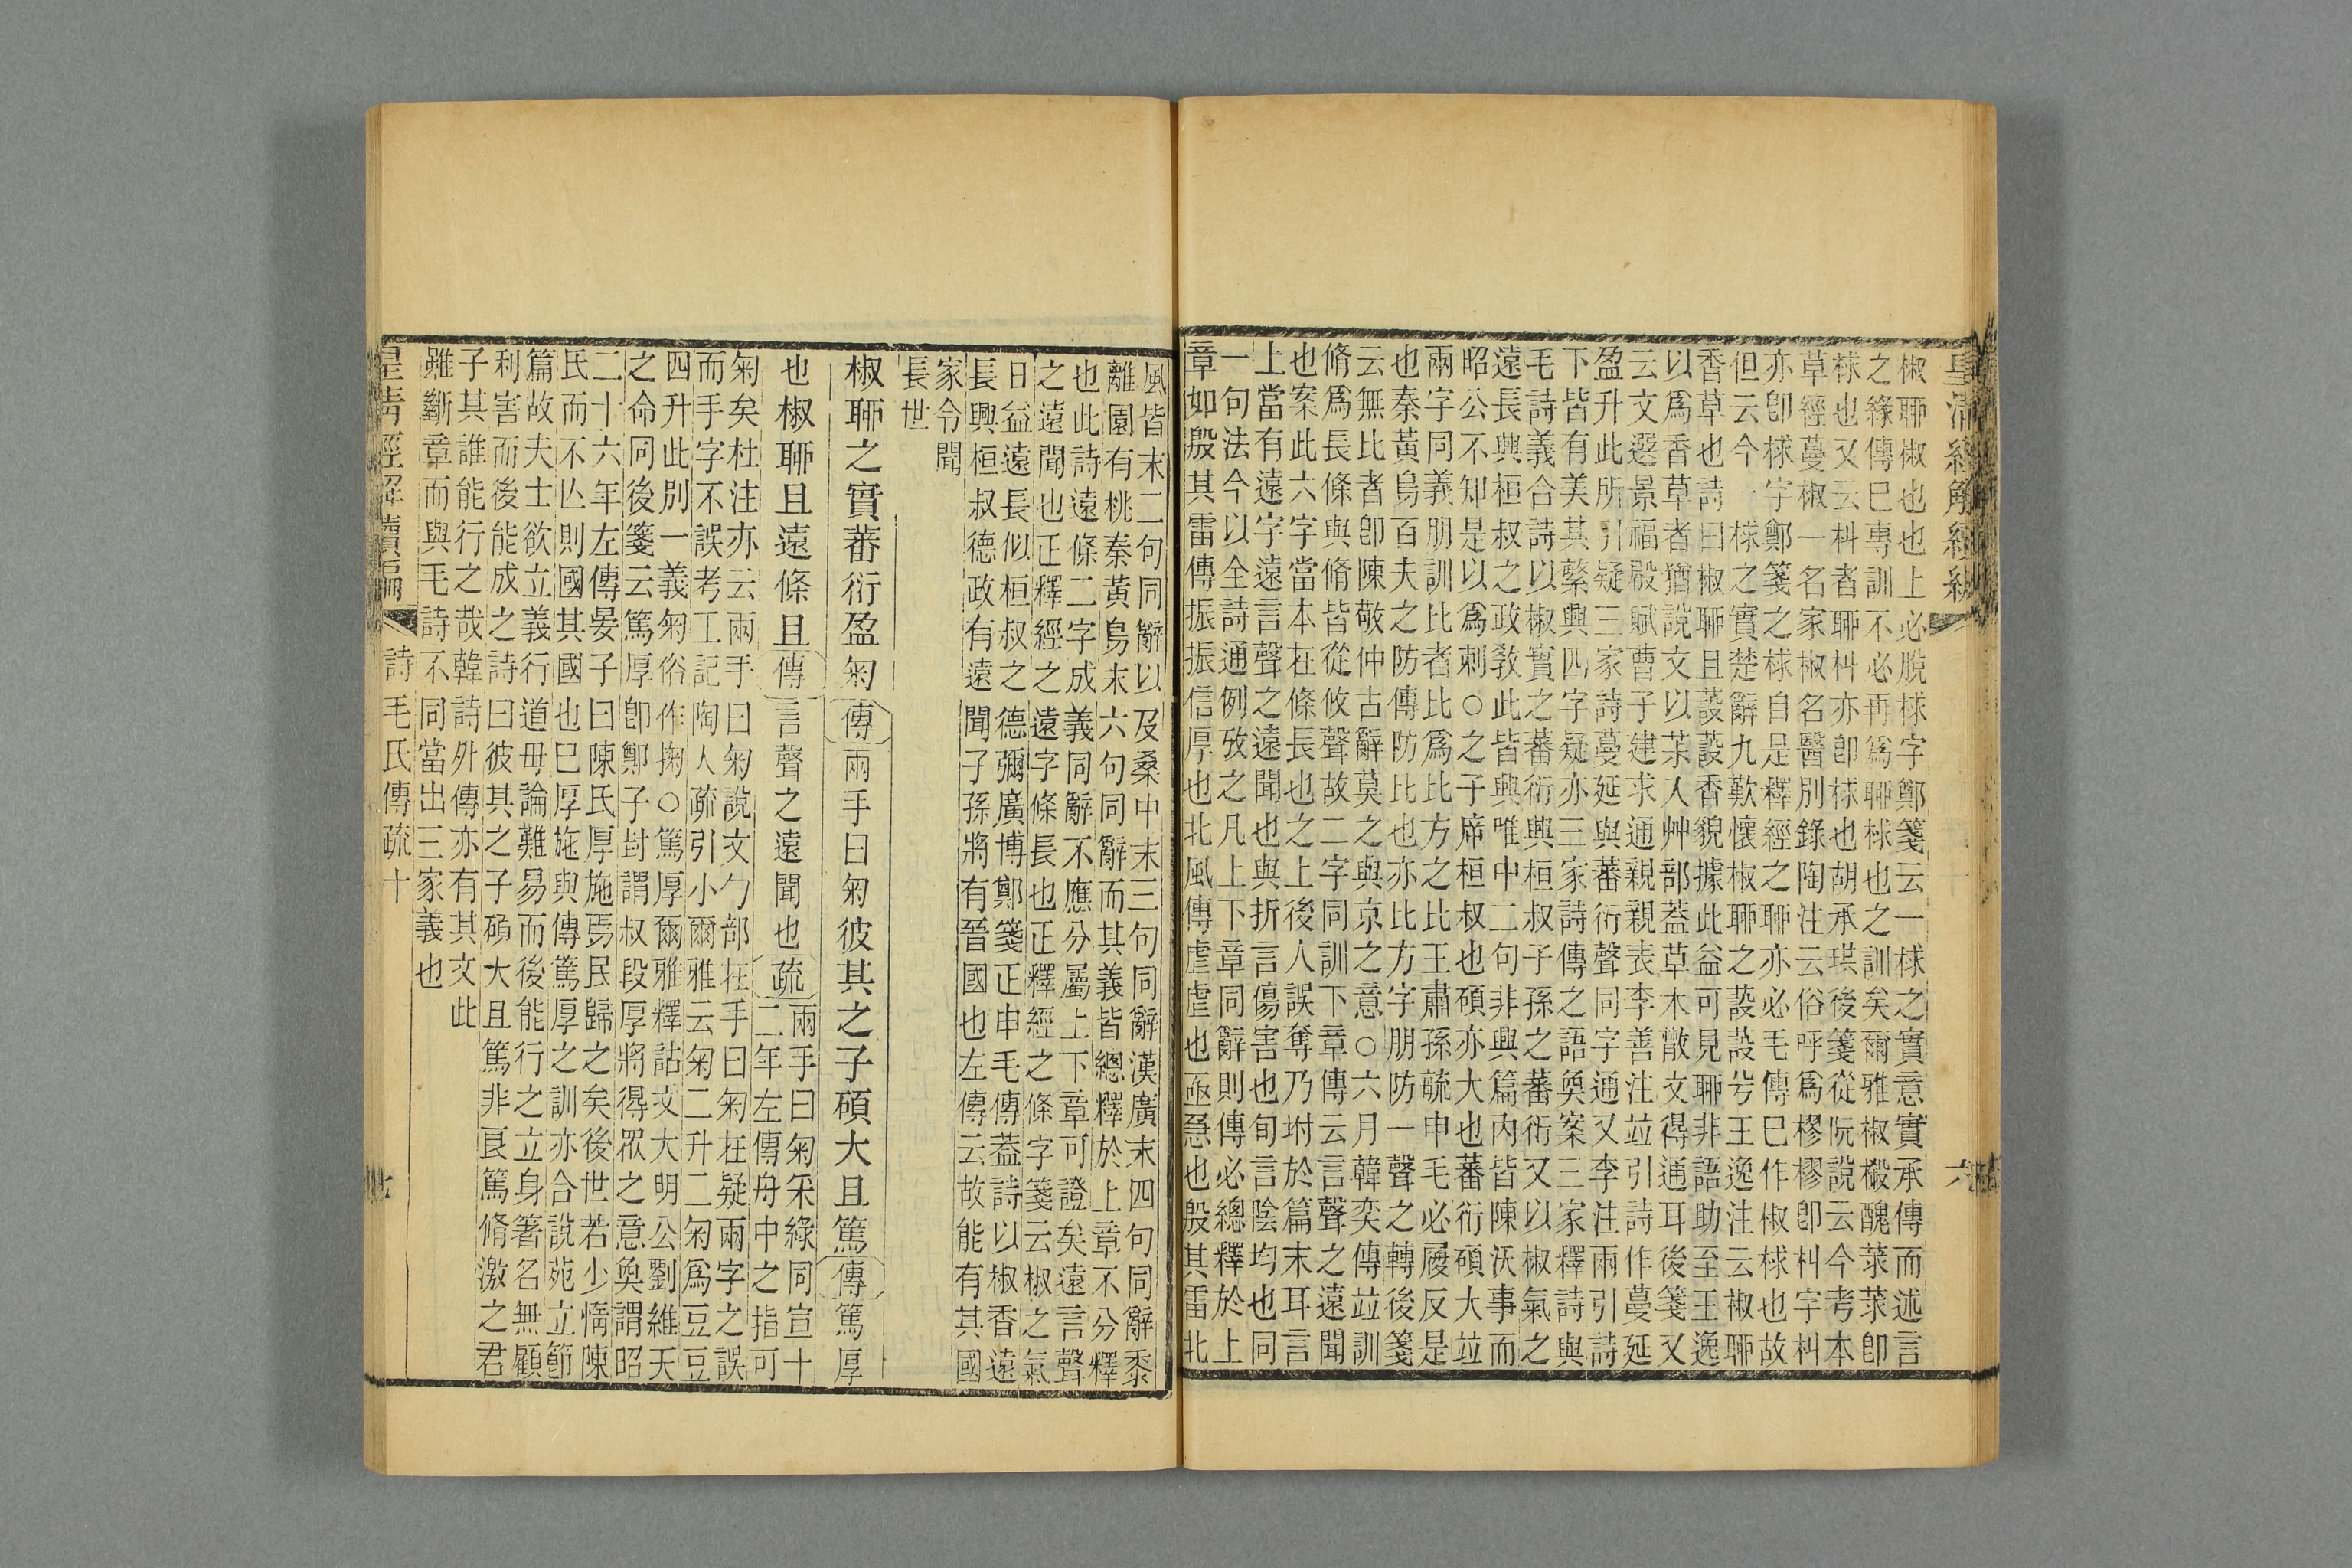 皇清經解續編
六
椒聊椒也也上必脫梂字鄭箋云一梂之實意實承傳而述言
之綠傳已專訓不必再爲聊梂也之訓矣爾雅椒樧醜莍莍卽
梂也又云朻者聊朻亦卽梂也胡承珙後箋從阮說云今考本
草經蔓椒一名家椒名醫別錄陶注云俗呼爲樛樛卽朻字朻
亦卽梂字鄭箋之梂自是釋經之聊亦必毛傳已作椒梂也故
但云今一梂之實楚辭九歎懷椒聊之蔎蔎兮王逸注云椒聊
香草也詩曰椒聊且蔎蔎香貌據此益可見聊非語助至王逸
以爲香草者猶說文以茮人艸部蓋草木散文得通耳後箋又
云文選景福殿賦曹子建求通親親表李善注竝引詩作蔓延
盈升此所引疑三家詩蔓延與蕃衍聲同字通又李注兩引詩
下皆有美其繁興四字疑亦三家詩傳之語奐案三家釋詩與
毛詩義合詩以椒實之蕃衍興桓叔子孫之蕃衍又以椒氣之
遠長興桓叔之政敎此皆興唯中二句非興篇內皆陳沃事而
昭公不知是以爲刺○之子席桓叔也碩亦大也蕃衍碩大竝
兩字同義朋訓比者比爲比方之比王肅孫毓申毛必履反是
也秦黃鳥百夫之防傳防比也亦比方字朋防一聲之轉後箋
云無比者卽陳敬仲古辭莫之與京之意○六月韓奕傳竝訓
脩爲長條與脩皆從攸聲故二字同訓下章傳云言聲之遠聞
也案此六字當本在條長也之上後人誤奪乃坿於篇末耳言
上當有遠字遠言聲之遠聞也與折言傷害也旬言陰均也同
一句法今以全詩通例攷之凡上下章同辭則傳必總釋於上
章如殷其雷傳振振信厚也北風傳虛虛也亟急也殷其雷北
風皆末二句同辭以及桑中末三句同辭漢廣末四句同辭黍
離園有桃秦黃鳥末六句同辭而其義皆總釋於上章不分釋
也此詩遠條二字成義同辭不應分屬上下章可證矣遠言聲
之遠聞也正釋經之遠字條長也正釋經之條字箋云椒之氣
日益遠長似桓叔之德彌廣博鄭箋正申毛傳蓋詩以椒香遠
長興桓叔德政有遠聞子孫將有晉國也左傳云故能有其國
家令聞
長世
椒聊之實蕃衍盈匊傳兩手曰匊彼其之子碩大且篤傳篤厚
也椒聊且遠條且傳言聲之遠聞也疏兩手曰匊采綠同宣十
二年左傳舟中之指可
匊矣杜注亦云兩手曰匊說文勹部在手曰匊在疑兩字之誤
而手字不誤考工記陶人疏引小爾雅云匊二升二匊爲豆豆
四升此別一義匊俗作掬○篤厚爾雅釋詁文大明公劉維天
之命同後箋云篤厚卽鄭子封謂叔段厚將得眾之意奐謂昭
二十六年左傳晏子曰陳氏厚施焉民歸之矣後世若少惰陳
氏而不亾則國其國也已厚施與傳篤厚之訓亦合說苑立節
篇故夫士欲立義行道毋論難易而後能行之立身箸名無顧
利害而後能成之詩曰彼其之子碩大且篤非良篤脩激之君
子其誰能行之哉韓詩外傳亦有其文此
雖斷章而與毛詩不同當出三家義也
皇清經解續編
詩 毛氏傳疏十
七